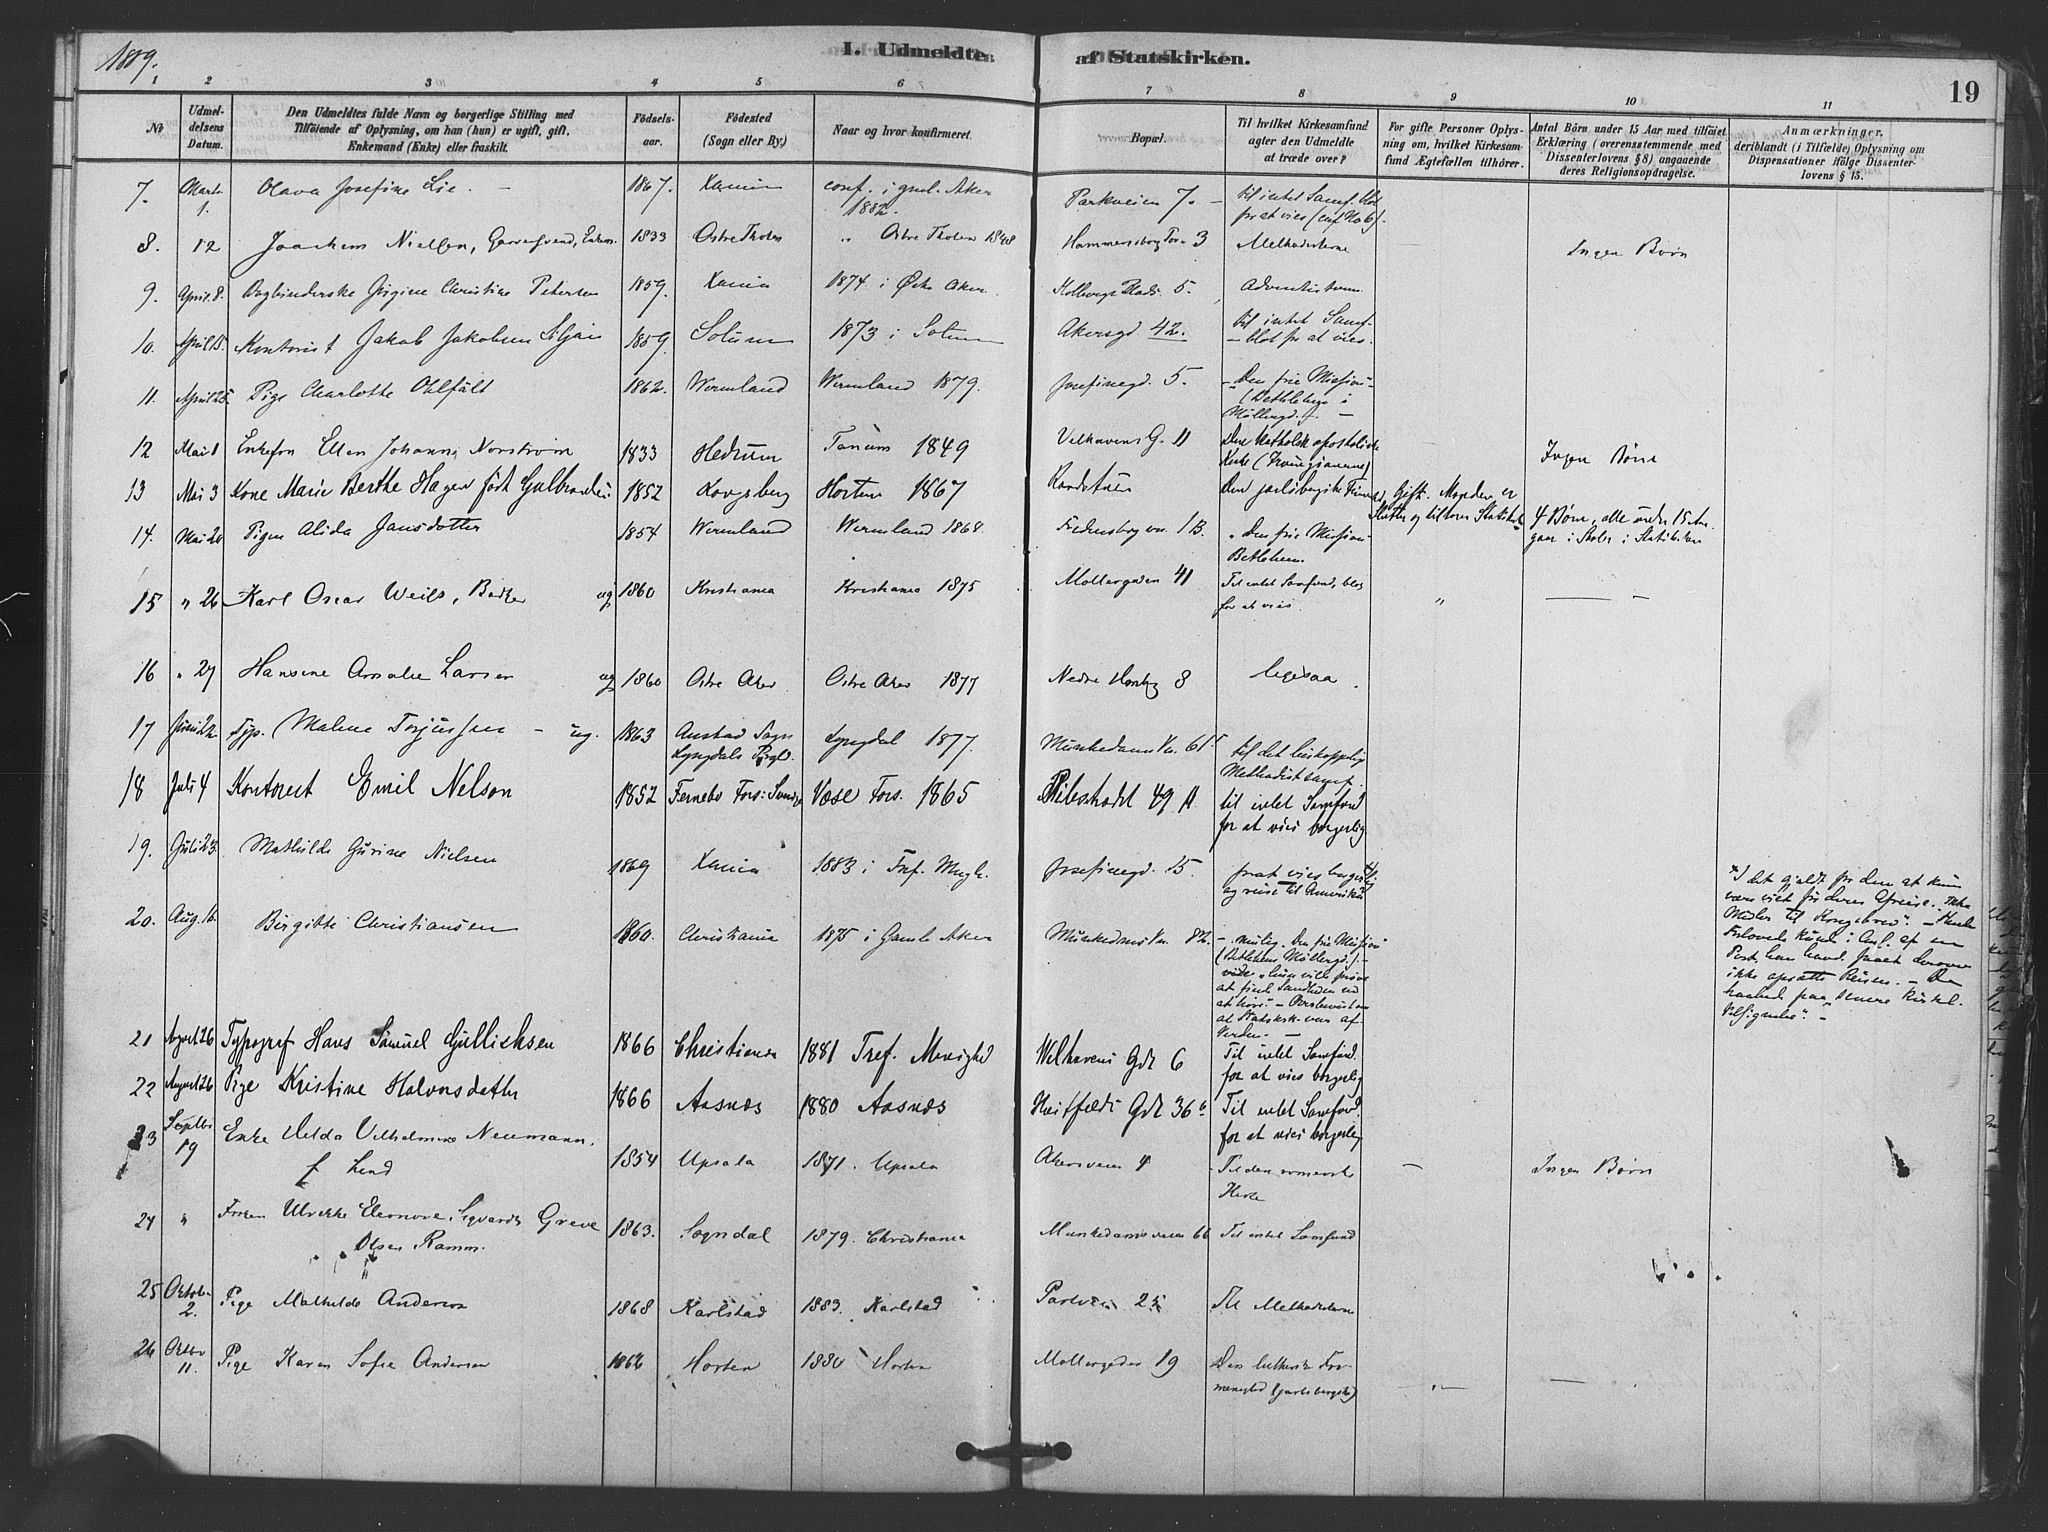 1889.
I. Udmeldte af Statskirken.
19
1 2 3 4 5 6 7 8 9 10 11
No
Udmel-
delsens
Datum.
Den Udmeldtes fulde Navn og borgerlige Stilling med
Tilføiende af Oplysning, om han (hun) er ugift, gift,
Enkemand (Enke) eller fraskilt.
Fødsels-
aar.
Fødested
(Sogn eller By.)
Naar og hvor konfirmeret.
Bopæl.
Til hvilket Kirkesamfund
agter den Udmeldte
at træde over?
For gifte Personer Oplys-
ning om, hvilket Kirkesam-
fund Ægtefællen tilhører.
Antal Børn under 15 Aar med tilføiet
Erklæring (overensstemmende med
Dissenterlovens § 8) angaaende
deres Religionsopdragelse.
Anmærkninger,
deriblandt (i Tilfælde) Oplysning om
Dispensationer ifølge Dissenter-
lovens § 15.
7. Marts 1. Olava Josefine Lie. 1867. Xania conf. i gml. Aker 1882. Parkveien 7. til intet Samf. blot for at vies
8. 12 Joachim Nielsen, Garversvend, Enkem. 1833 Østre Thoten " Østre Thoten 1848 Hammersborg Torv 3 Methodisterne Ingen Børn
9. April 8. Bogbinderske Jørgine Christine Petersen 1859. Xania 1874 i Østre Aker. 5. Adventistsam.
10. April 15. Kontorist Jakob Jakobsen Siljan 1859. Solum 1873 i Solum Akersgd 42. til intet Samf. - blot for at vies.
11. April 25. Pige Charlotte Ohlfält 1862. Wermland Wermland 1879. Josefinegd. 5. - Den frie Mission (Bethlehem i Møllergd.). -
12 Mai 1 Enkefru Ellen Johanne Norström 1833 Hedrum Tanum 1849 Velhavens G. 11 Den katholsk apostoliske Kirke (Irvingianerne) Ingen Børn
13 Mai 3 Kone Marie Berthe Hagen født Gulbrandsen 1852 Kongsberg Horten 1867 Randstuen Den jarlsbergske Frimd. Gift. Manden er Slatter og tilhører Statskirk 4 Børn, alle under 15 Aar. gaar i Skoler i Statskirken
14. Mai 20 Pigen Alida Jansdotter 1854 Wermland Wermland 1868. Fredensborgvn. 1B. "Den frie Mission Betlehem.
15 " 26 Karl Oscar Weils, ug 1860 Kristiania Kristiania 1875 Møllergaden 41 Til intet Samfund, blot for at vies " — -
16 " 27 Hansine Amalie Larsen ug 1860 Østre Aker Østre Aker 1877 Nedre 8 ligesaa.
17 Juni 22 Typ. Malene Torjussen - ug. 1863 Austad Sogn Lyngdals Prgld. Lyngdal 1877. Munkedamsvn. 61 til det biskoppelige Methodistsamf.
18 Juli 4 Kontorist Emil Nelson 1852 Fernebo Fors: Sverige Väse Fors. 1865 Pilestrædet 49 A til intet Samfund for at vies borgerlig
19. Juli 23. Mathilde Gurine Nielsen 1869 Xania 1883 i Tref. Mngh. Josefinegd. 15. forat vies borgerlig og reise til Amerika
20. Aug. 16. Birgitte Christiansen 1860. Christiania 1875 i Gamle Aker Munkedamsvn. 82. - mulig. Den frie Mission (Bethlehem Møllergd.). - vide "hun vilde prøve at finde Sandheden ved at høre" - Overbevist om at Statskirk. var af Verden. -
*I det gjaldt for den at kun være viet før deres Afreise. Ikke Midler til Kongebrev". - Havde Forlovede kunde i Anl. af en Post, han havde faaet derover ikke opsætte Reisen. - De haabede paa "senere kirkel. Velsignelse". -
21 August 26 Typograf Hans Samuel Gullichsen 1866 Christiania 1881 Tref. Menighed Welhavens Gde 6 Til intet Samfund. for at vies borgerlig
22 August 26 Pige Kristine Halvorsdatter 1866 Aasnæs 1880 Aasnæs Huitfeldts Gde 36 Til intet Samfund. for at vies borgerlig
23 Septbr 19 Enke Hilda Vilhelmine Neumann. f Lind 1854 Upsala 1871. Upsala Akersveien 4 Til den romerske Kirke - Ingen Børn
24 " Frøken Ulrikke Eleonore Sigvardt Greve Olsen Ramm. 1863. Sogndal 1879. Christiania Munkedamsveien 66 Til intet Samfund
25 Oktober 2. Pige Mathilde Anderson 1868 Karlstad 1883. Karlstad Parkvein 25 Til Methodisterne
26 Oktbr 11. Pige Karen Sofie Andersen 1866 Horten 1880 Horten Møllergaden 19 Den lutherske Frimenighed (Jarlsbergske) - " - —